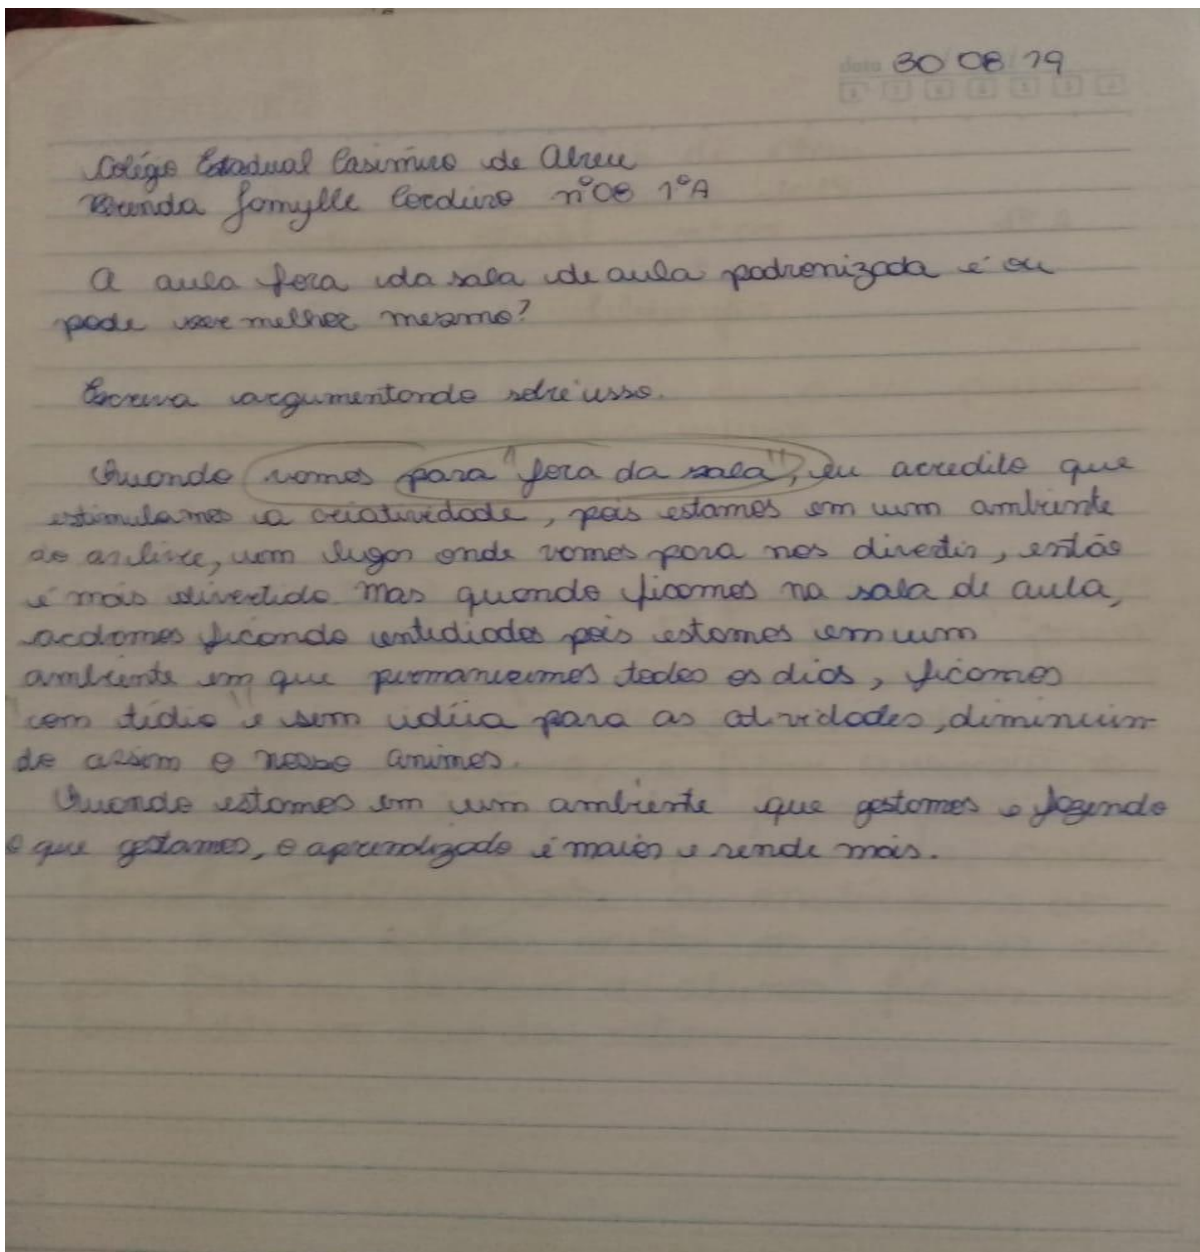 data 30 08 19
Colégio Estadual Casimiro de Abreu
Brenda Jamylle Cordeiro nº08 1ºA
A aula fora da sala de aula padronizada é ou
pode ser melhor mesmo?
Escreva argumentando sobre isso.
Quando vamos para "fora da sala", eu acredito que
estimulamos a criatividade, pois estamos em um ambiente
ao ar livre, um lugar onde vamos para nos divertir, então
é mais divertido. Mas quando ficamos na sala de aula,
acabamos ficando entediados pois estamos em um
ambiente em que permanecemos todos os dias, ficamos
com tédio e sem idéia para as atividades, diminuin-
do assim o nosso animos.
Quando estamos em um ambiente que gostamos e fazendo
o que gostamos, o aprendizado é maior e rende mais.